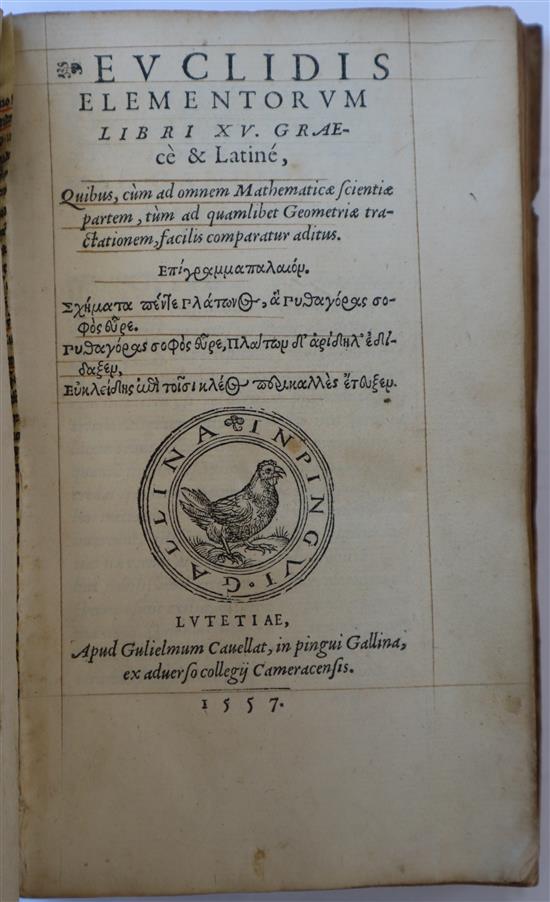 EVCLIDIS
ELEMENTORVM
LIBRI XV. GRAE-
cè & Latiné,
Quibus, cùm ad omnem Mathematicæ ſcientiæ
partem, tùm ad quamlibet Geometriæ tra-
ctationem, facilis comparatur aditus.
Επίγραμμα παλαιόν.
Σχήματα πέντε Πλάτωνος, ἃ Πυθαγόρας σο-
φὸς εὗρε.
Πυθαγόρας σοφὸς εὗρε, Πλάτων δ' ἀρίδηλ' ἐδί-
δαξεν,
Εὐκλείδης ἐπὶ τοῖσι κλέος περικαλλὲς ἔτευξεν.
GALLINA IN PINGVI
LVTETIAE,
Apud Gulielmum Cauellat, in pingui Gallina,
ex aduerſo collegij Cameracenſis.
1557.